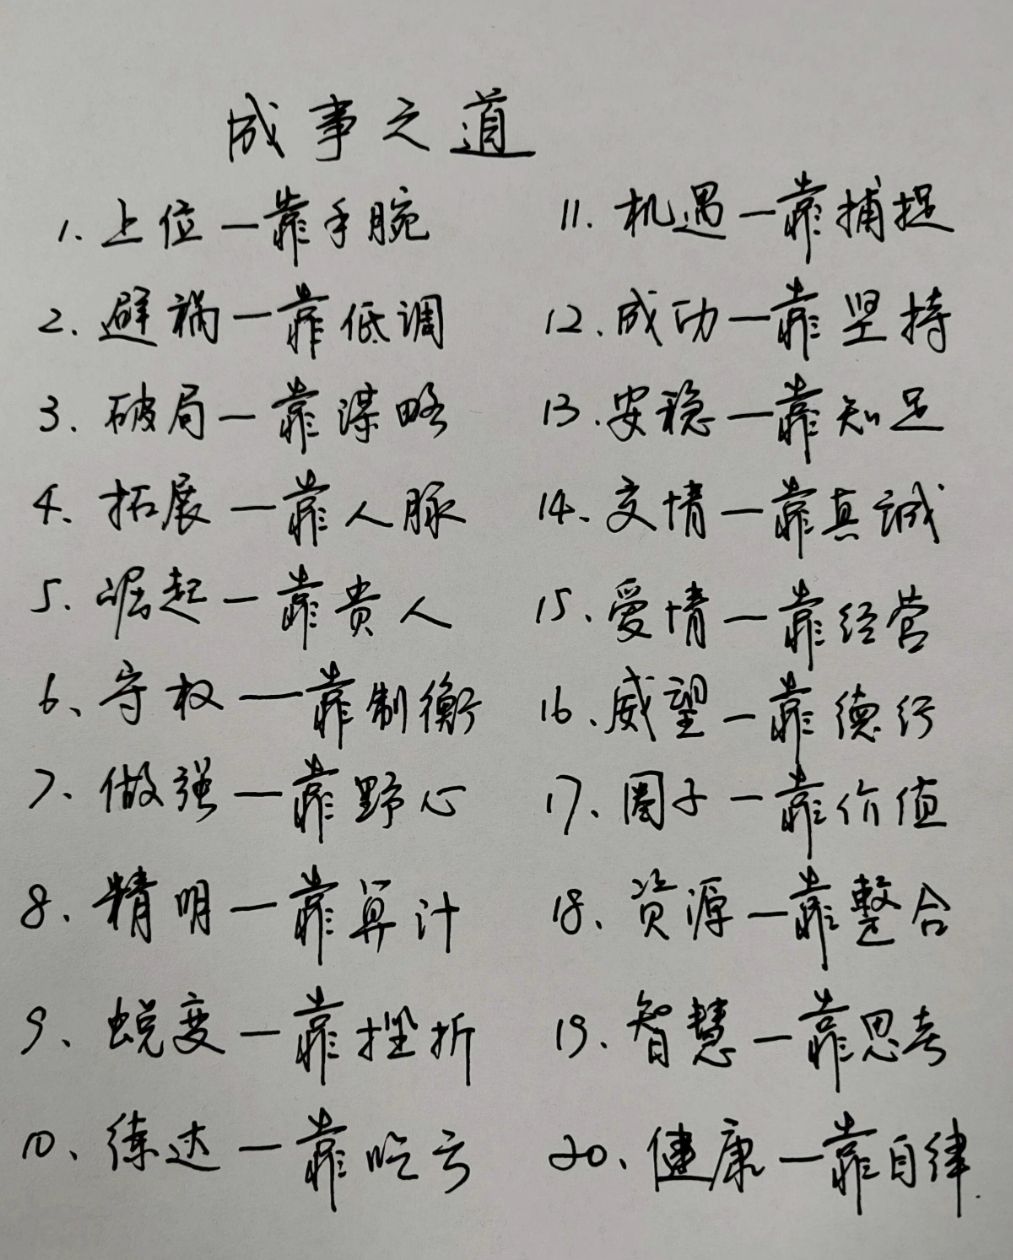 成事之道
1. 上位一靠手腕
2. 避祸一靠低调
3. 破局一靠谋略
4、拓展一靠人脉
5. 崛起一靠贵人
6、守权一靠制衡
7、做强一靠野心
8、精明一靠算计
9、蜕变一靠挫折
10、练达一靠吃亏
11. 机遇一靠捕捉
12. 成功一靠坚持
13. 安稳一靠知足
14、交情一靠真诚
15. 爱情一靠经营
16、威望一靠德行
17、圈子一靠价值
18、资源一靠整合
19、智慧一靠思考
20、健康一靠自律.